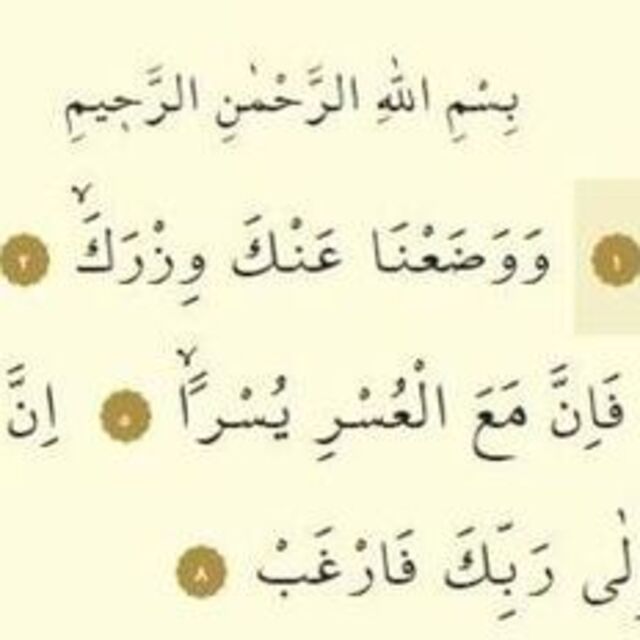 بِسْمِ اللّٰهِ الرَّحْمٰنِ الرَّح۪يمِ
١ وَوَضَعْنَا عَنْكَ وِزْرَكَۙ ٢
فَاِنَّ مَعَ الْعُسْرِ يُسْرًاۙ ٥ اِنَّ
لٰى رَبِّكَ فَارْغَبْ ٨